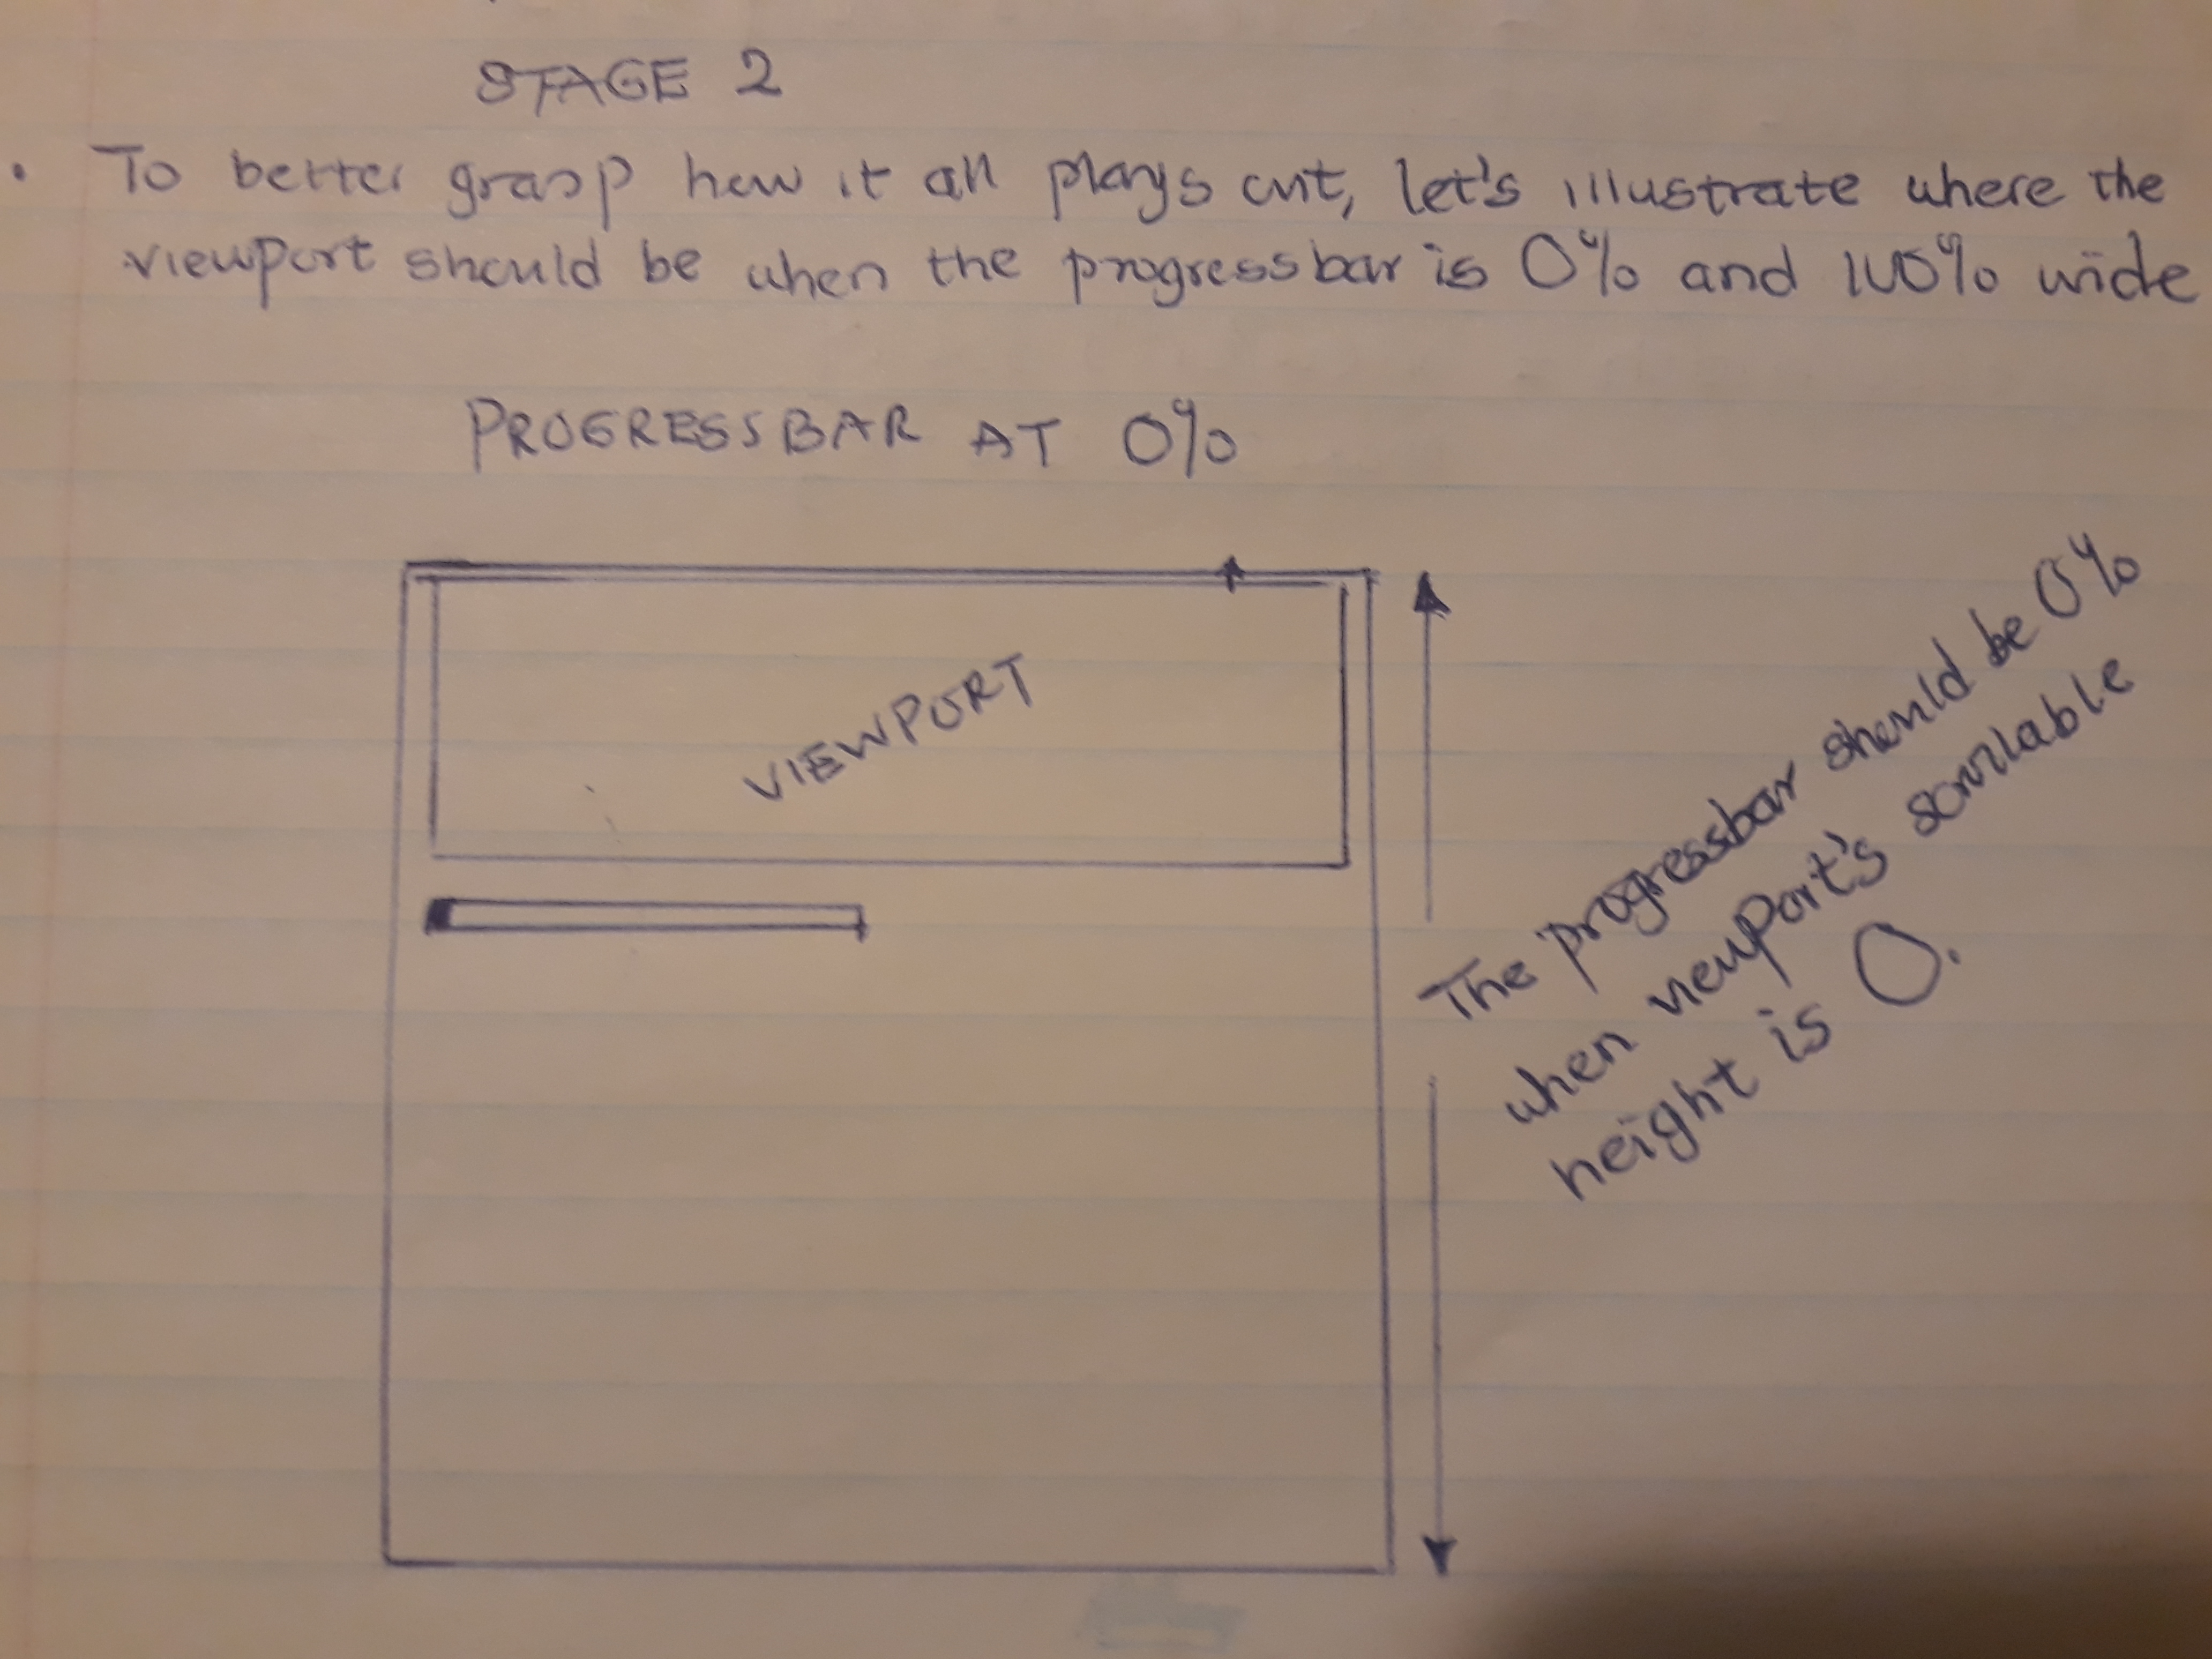 STAGE 2
. To better grasp how it all plays out, let's illustrate where the
viewport should be when the progressbar is 0% and 100% wide
PROGRESSBAR AT 0%
VIEWPORT
The progressbar should be 0%
when viewport's scrollable
height is 0.